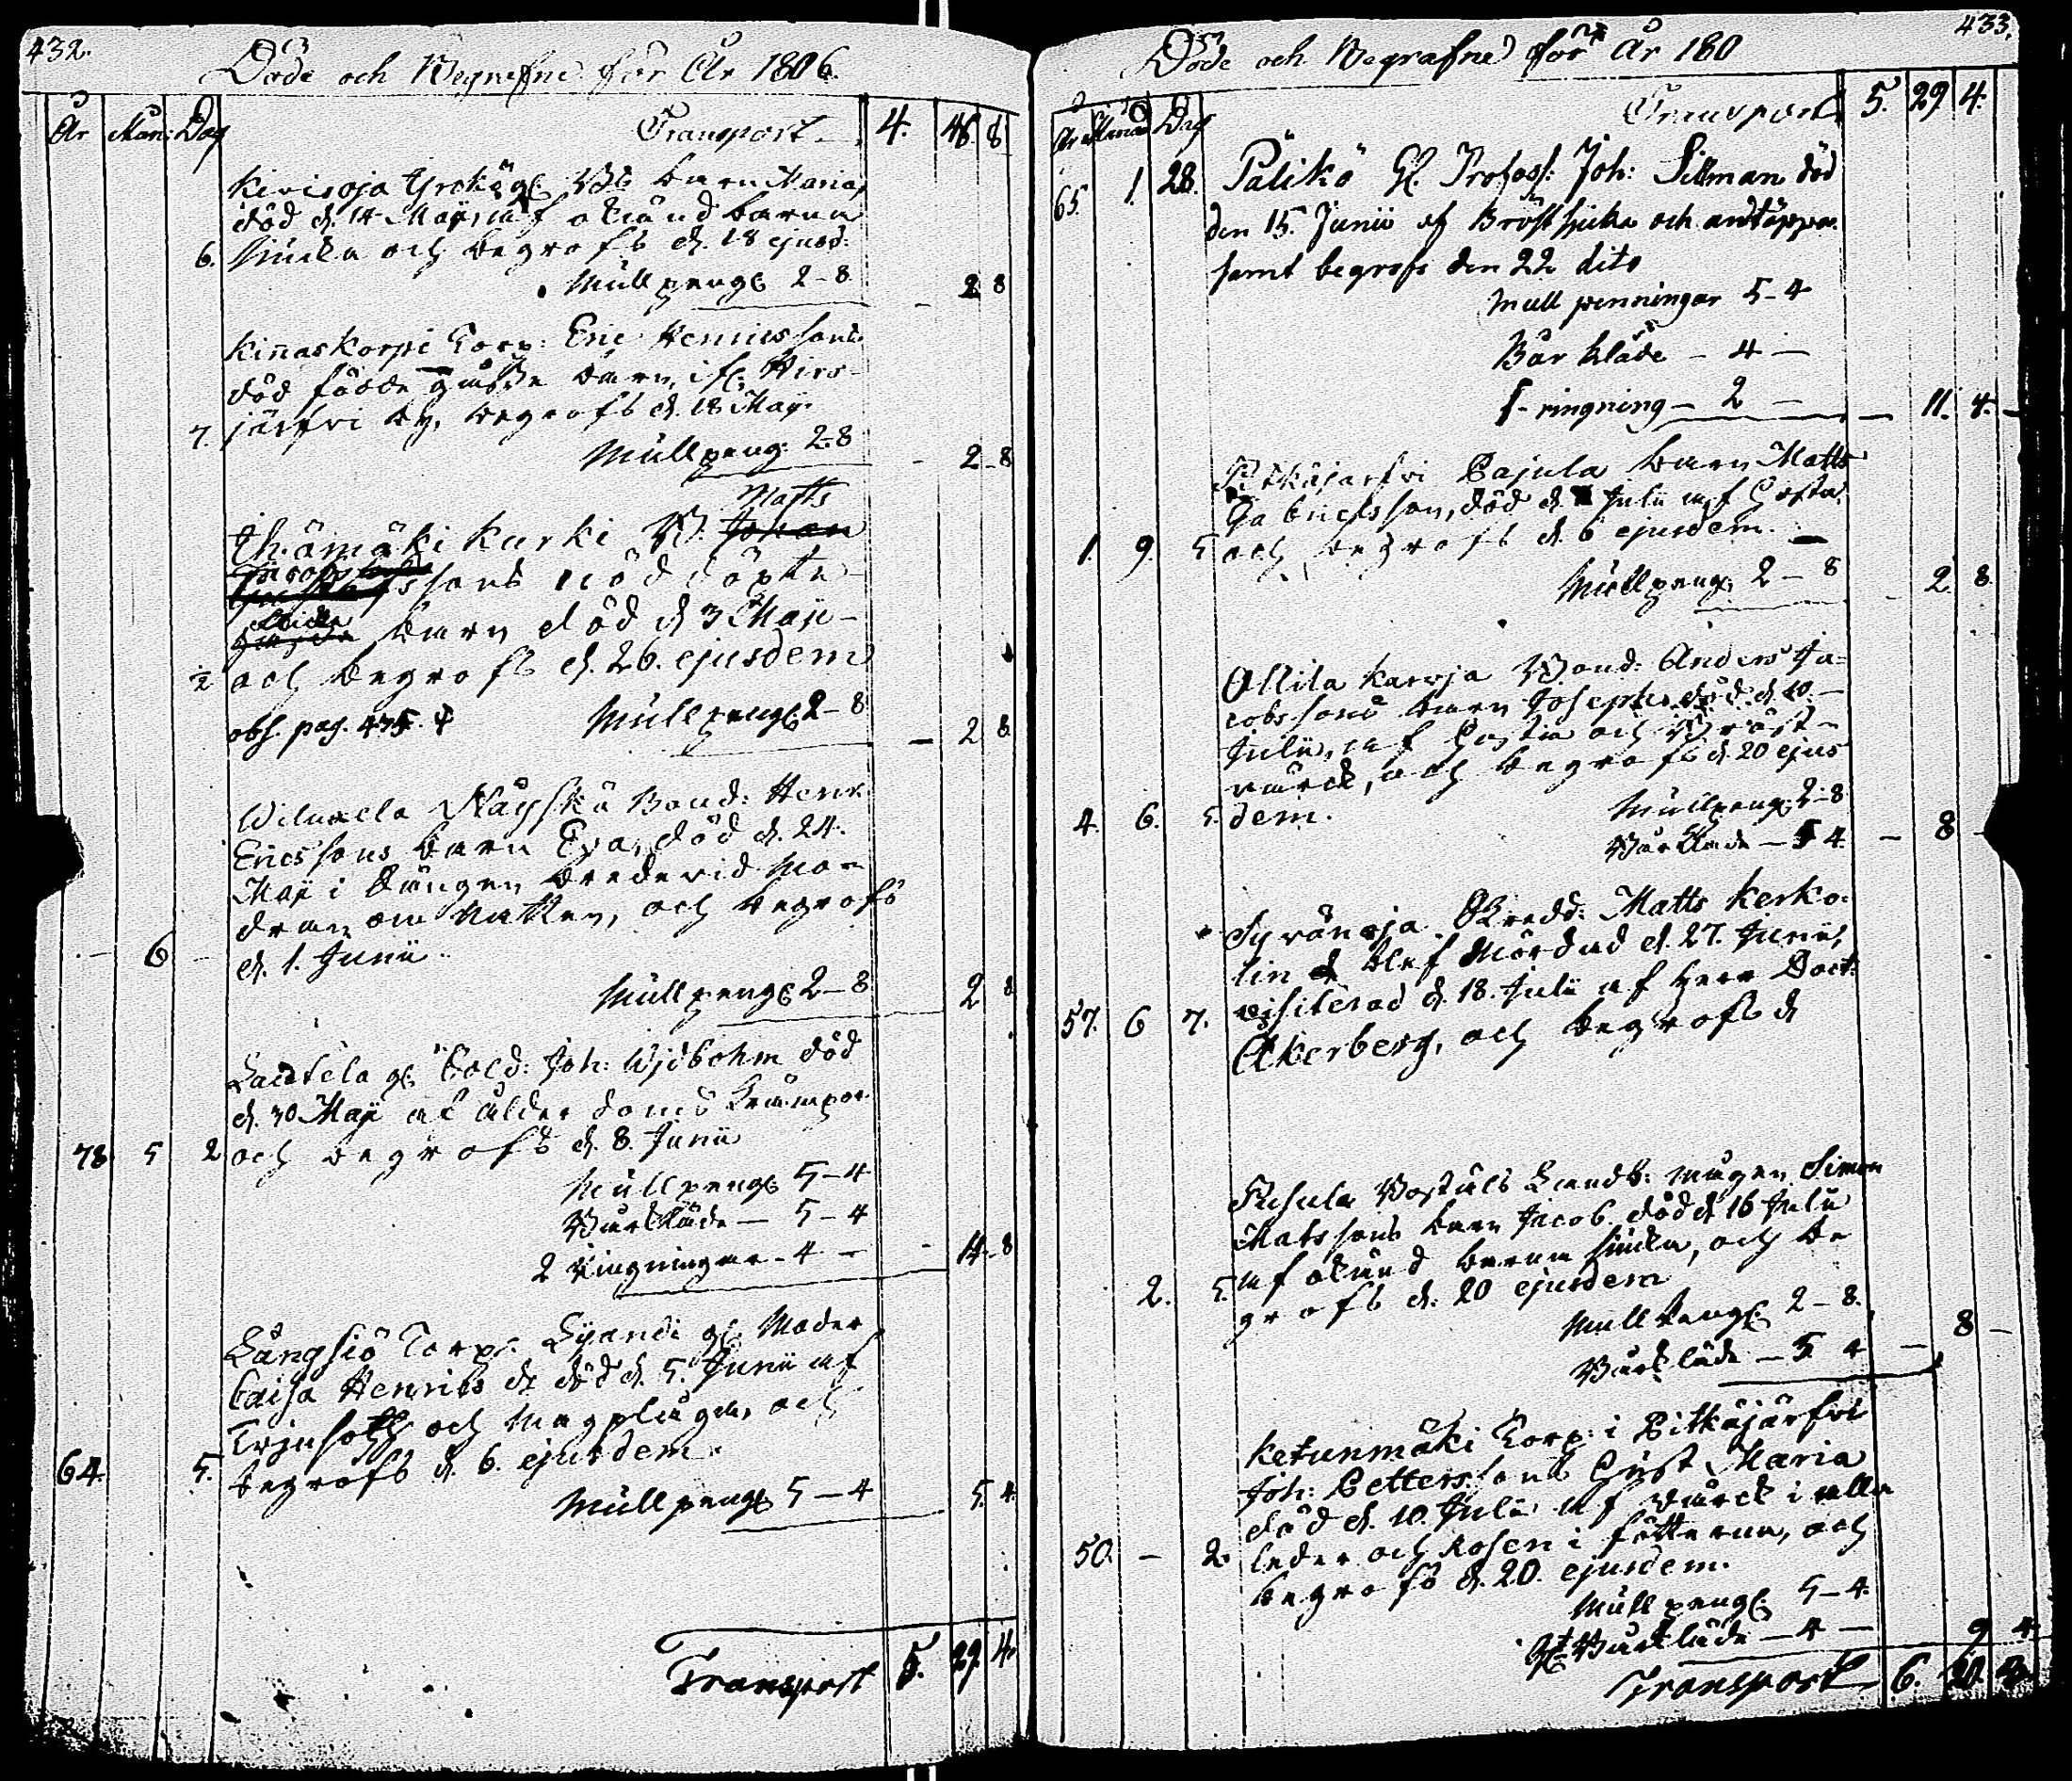 432.
Döde och Begrafne för År 1806.
År Mån: Dag
Transport 4. 46. 8
Kivioja Yrckä gl: Bds barn Maria,
död d. 14 Maji, af okänd barna
6. siucka och begrofs d. 18 ejusd:
Mullpeng: 2-8
- 2 8
Kinaskorpi Torp: Eric Henricssons
död födde gosse barn, i Hirs-
7. järfvi by, begrofs d. 18 Maji
Mullpeng: 2-8
- 2-8
Matts
Kurki B. Johan
Jacobs
sons nöd döpte
barn död d 3 Maji
1/2 och begrofs d. 26. ejusdem
obs. pag. 435. Mullpeng: 2-8
- 2 8
Näyskä Bond: Henr:
Ericssons barn Eva, död d. 24.
Maji i sängen brede vid mo-
dren om natten, och begrofs
- 6 - d. 1. Junii
Mullpeng: 2-8
2 8
gl: Sold: Joh: Widbohm död
d. 30 Maji af ålderdoms krämpor
78 5 2 och begrofs d. 8. Junii
Mullpeng: 5-4
Bårkläde - 5-4
2 Ringningar - 4 -
- 14-8
Långsiö Torp: gl: Moder
Caisa Henrics dr död d. 5. Junii af
Trinsot och magplågor, och
64. 5. begrofs d. 6. ejusdem.
Mullpeng: 5-4
5. 4.
Transport 5. 29. 4.
433.
Döde och Begrafne för År 180
År Månad Dag
Transport 5. 29 4.
65. 1. 28. Palikö Gl. Profoss: Joh: Sillman död
den 15. Junii af Bröstsjuka och andtäppa
samt begrofs den 22 dito
Mull penningar 5-4
Bår kläde - 4 -
1- ringning - 2 -
- 11. 4.
Pitkäjärfvi Pajula barn Matts
Gabrielsson, död d. Julii af Hosta
1. 9. 5 och begrofs d. 6 ejusdem.
Mullpeng: 2-8
2. 8.
Ollila Karoja Bond: Anders Ja-
cobssons barn Josephus död d. 10.
Julii, af Hosta och Bröst-
värck, och begrofs d. 20 ejus
4. 6. 5. dem.
Mullpeng: 2-8
Bårkläde - 5 4.
- 8 -
Syvänoja Matts Kerko-
lin blef Mördad d. 27. Junii,
57. 6 7. visiterad d. 18. Julii af Herr Doct:
Åkerberg, och begrofs d
Bostäls Landb: mågen Simon
Matssons barn Jacob död d 16 Julii
af okänd barna siucka, och be
2. 5. grofs d. 20 ejusdem
Mullpeng: 2-8.
Bårkläde - 5 4
- 8 -
Ketunmäki Torp: i Pitkäjärfvi
Joh: Petterssons Hust. Maria
död d. 10. Julii af värck i alla
50. - 2. leder och Rosen i fötterna, och
begrofs d. 20. ejusdem.
Mullpeng: 5-4.
Bårkläde - 4 -
9 4.
Transport 6.